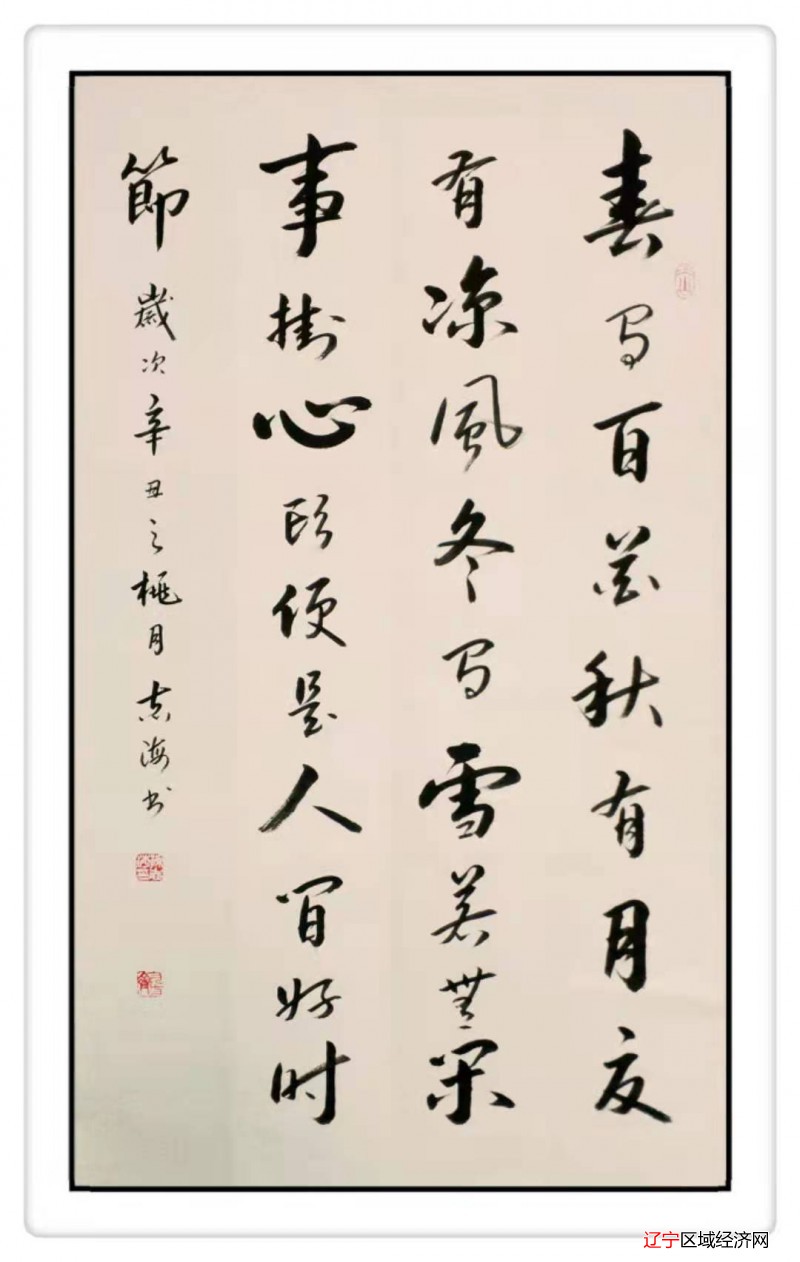 春有百花秋有月夏
有凉風冬有雪若無閑
事掛心頭便是人間好时
節 歲次辛丑之桃月志海书
辽宁区域经济网